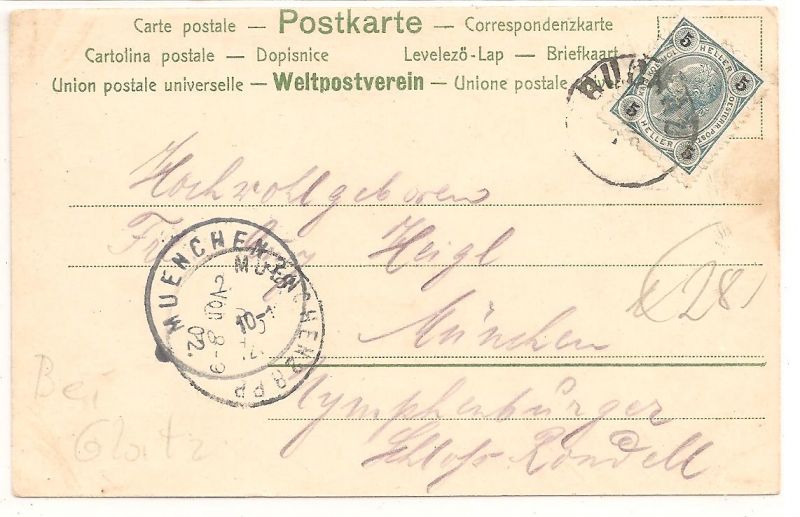 Carte postale — Postkarte — Correspondenzkarte
Cartolina postale — Dopisnice Levelező-Lap — Briefkaart
Union postale universelle — Weltpostverein — Unione postale
5 HELLER 5
5 HELLER 5
Hochwohlgeboren
Heigl
München
Nymphenburger
Schloss Rondell
28
MUENCHEN
2
VOR. 8-9
02.
Bei
Glatz